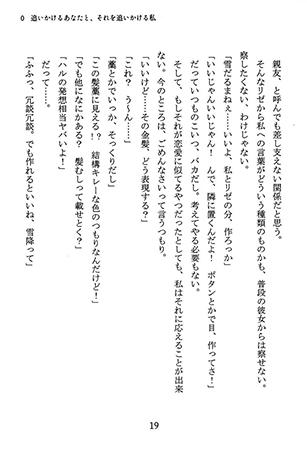 0 追いかけるあなたと、それを追いかける私
親友、と呼んでも差し支えない関係だと思う。
そんなリゼから私への言葉がどういう種類のものかも、普段の彼女からは察せない。
察したくない、わけじゃない。
「雪だるまねぇ……いいよ、私とリゼの分、作ろっか」
「いいじゃんいいじゃん! んで、隣に置くんだよ! ボタンとかで目、作ってさ!」
だっていつものこいつ、バカだし。考えてやる必要もない。
そして、もしそれが恋愛に似てるやつだったとしても、私はそれに応えることが出来
ない。今のところは、ごめんなさいって言うつもり。
「いいけど……その金髪、どう表現する?」
「これ? う〜ん……」
「藁とかでいっか、そっくりだし」
「この髪藁に見える!? 結構キレーな色のつもりなんだけど!」
「でも他になにかある? 髪むしって載せとく?」
「ハルの発想相当ヤバいよ!」
だって……。
「ふふっ、冗談冗談。でも作れるといいね、雪降って」
19